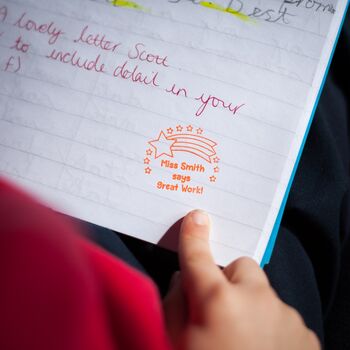 Best
A lovely letter Scott
to include detail in your
Miss Smith
says
Great Work!